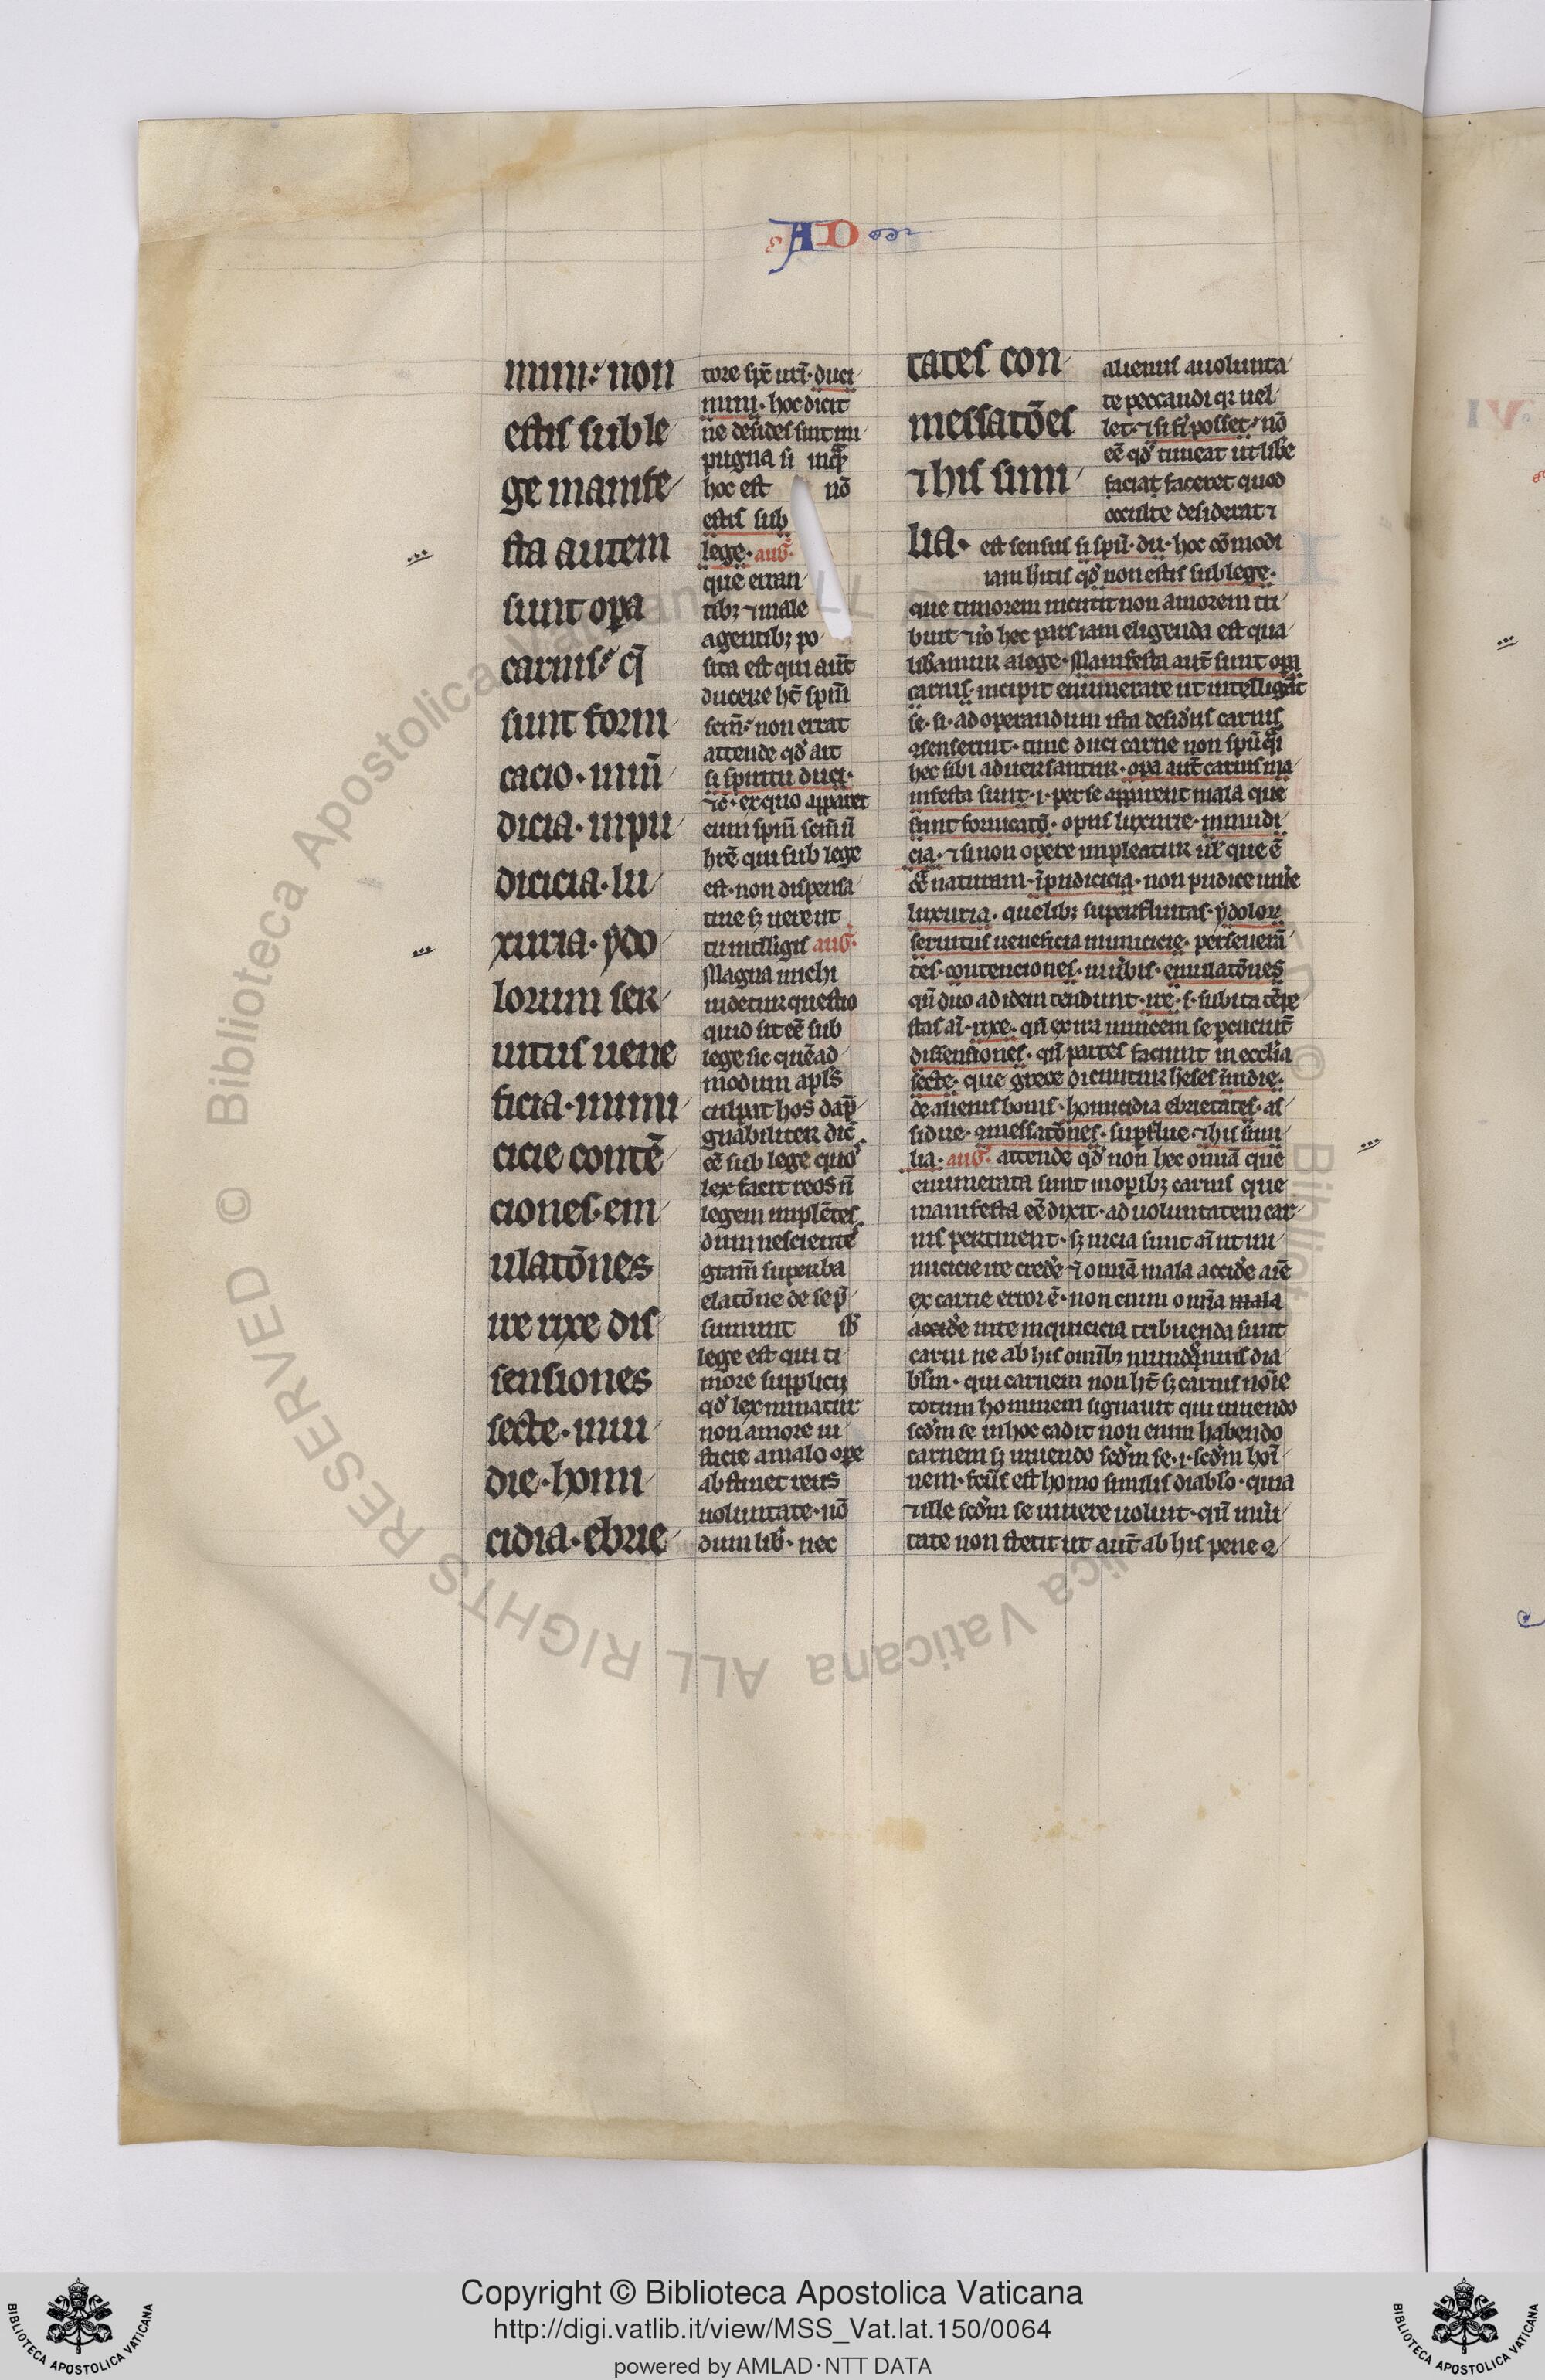 AD
mini: non
estis sub le
ge manife
sta autem
sunt opa
carnis: q̄
sunt forni
cacio. inmū
dicia. inpu
dicicia. lu
xuria. ydo
lorum ser
uitus uene
ficia. inimi
cicie contē
ciones. em
ulatōnes
ire rixe dis
sensiones
secte. inui
die. homi
cidia. ebrie
tore spē uri. duci
mini. hoc dicit
ne desides sint in
pugna si inqͣ
hoc est nō
estis sub
lege. auḡ.
que erran
tibꝫ ⁊ male
agentibꝫ po
sita est qui aūt
ducere hꝰ spm̄
scm̄: non errat
attende qd̓ ait
si spiritu duci.
⁊c̄. ex quo apparet
eum spm̄ scm̄ n̄
hr̄e qui sub lege
est. non dispensa
tiue sꝫ uere ut
tu intelligis auḡ.
Magna michi
uidetur questio
quid sit eē sub
lege sic quēad
modum apl̄s
culpat hos dāp
nabiliter dic̄
eē sub lege quos
lex facit reos n̄
legem implētes
dum nescientes
gram̄ superba
elatōne de se p̄
sumunt sb̄
lege est qui ti
more supplicij
qd̓ lex minatur
non amore iu
sticie a malo ope
abstinet reus
uoluntate. nō
dum lib̓. nec
tates con
messatōes
⁊ his simi
lia.
alienus a uolunta
te peccandi qr uel
let. ⁊ si fi̓ posset: nō
eē qd̓ timeat ut libe
faciat faceret quod
occulte desiderat ⁊
est sensus si spū. du. hoc cōmodi
iam hītis qd̓ non estis sub lege.
que timorem incutit non amorem tri
buit ⁊ iō hec pars iam eligenda est qua
libamur a lege. Manifesta aūt sunt opa
carnis. incipit enumerare ut intelligāt
se. si. ad operandum ista desid̓iis carnis
ɔsenserint. tunc duci carne non spū q̄i
hec sibi aduersantur. opa aūt carnis ma
nifesta sunt. i. per se apparent mala que
sunt fornicatō. opus luxurie. inmundi
cia. ⁊ si non opere impleatur ul̓ que ē
cͣ naturam. īpudicicia. non pudice uiue
luxuria. quelibꝫ superfluitas. ydolor
seruitus ueneficia inimicicie. perseuerā
tes. contenciones. in u̓bis. emulatōnes
qn̄ duo ad idem tendunt. ire. s. subita tēpe
stas aī. rixe. qn̄ ex ira inuicem se peuciūt
dissensiones. qn̄ partes faciunt in ecclia
secte. que grece dicuntur hеses inuidie.
de alienis bonis. homicidia ebrietates. as
sidue. ɔmessatōnes. supflue ⁊ his simi
lia. auḡ. attende qd̓ non hec omīa que
enumerata sunt in opibꝫ carnis que
manifesta eē dixit. ad uoluntatem car
nis pertinent. sꝫ uicia sunt aī ut ini
micicie ire crede ⁊ omīa mala accid̓e aīe
ex carne error ē. non enim omīa mala
accid̓e uite in quicicia tribuenda sunt
carni ne ab his omīibꝫ mundemus dia
blm. qui carnem non hꝫ sꝫ carnis noīe
totum hominem signauit qui uiuendo
scd̓m se in hoc cadit non enim habendo
carnem sꝫ uiuendo scd̓m se. i. scd̓m hoī
nem. fcūs est homo similis diablo. quia
⁊ ille scd̓m se uiuere uoluit. qn̄ in ui̓
tate non stetit ut aūt ab his pene ɔ
Copyright © Biblioteca Apostolica Vaticana
http://digi.vatlib.it/view/MSS_Vat.lat.150/0064
powered by AMLAD·NTT DATA